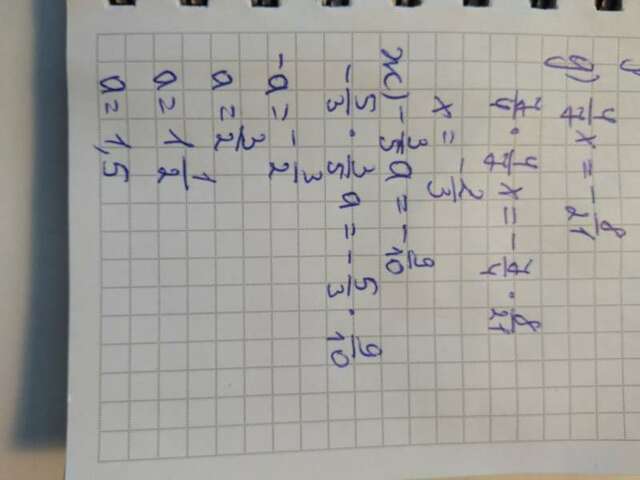 д) 4/7 x = - 8/21
7/4 · 4/7 x = - 7/4 · 8/21
x = - 2/3
ж) - 3/5 a = - 9/10
- 5/3 · 3/5 a = - 5/3 · 9/10
- a = - 3/2
a = 3/2
a = 1 1/2
a = 1,5